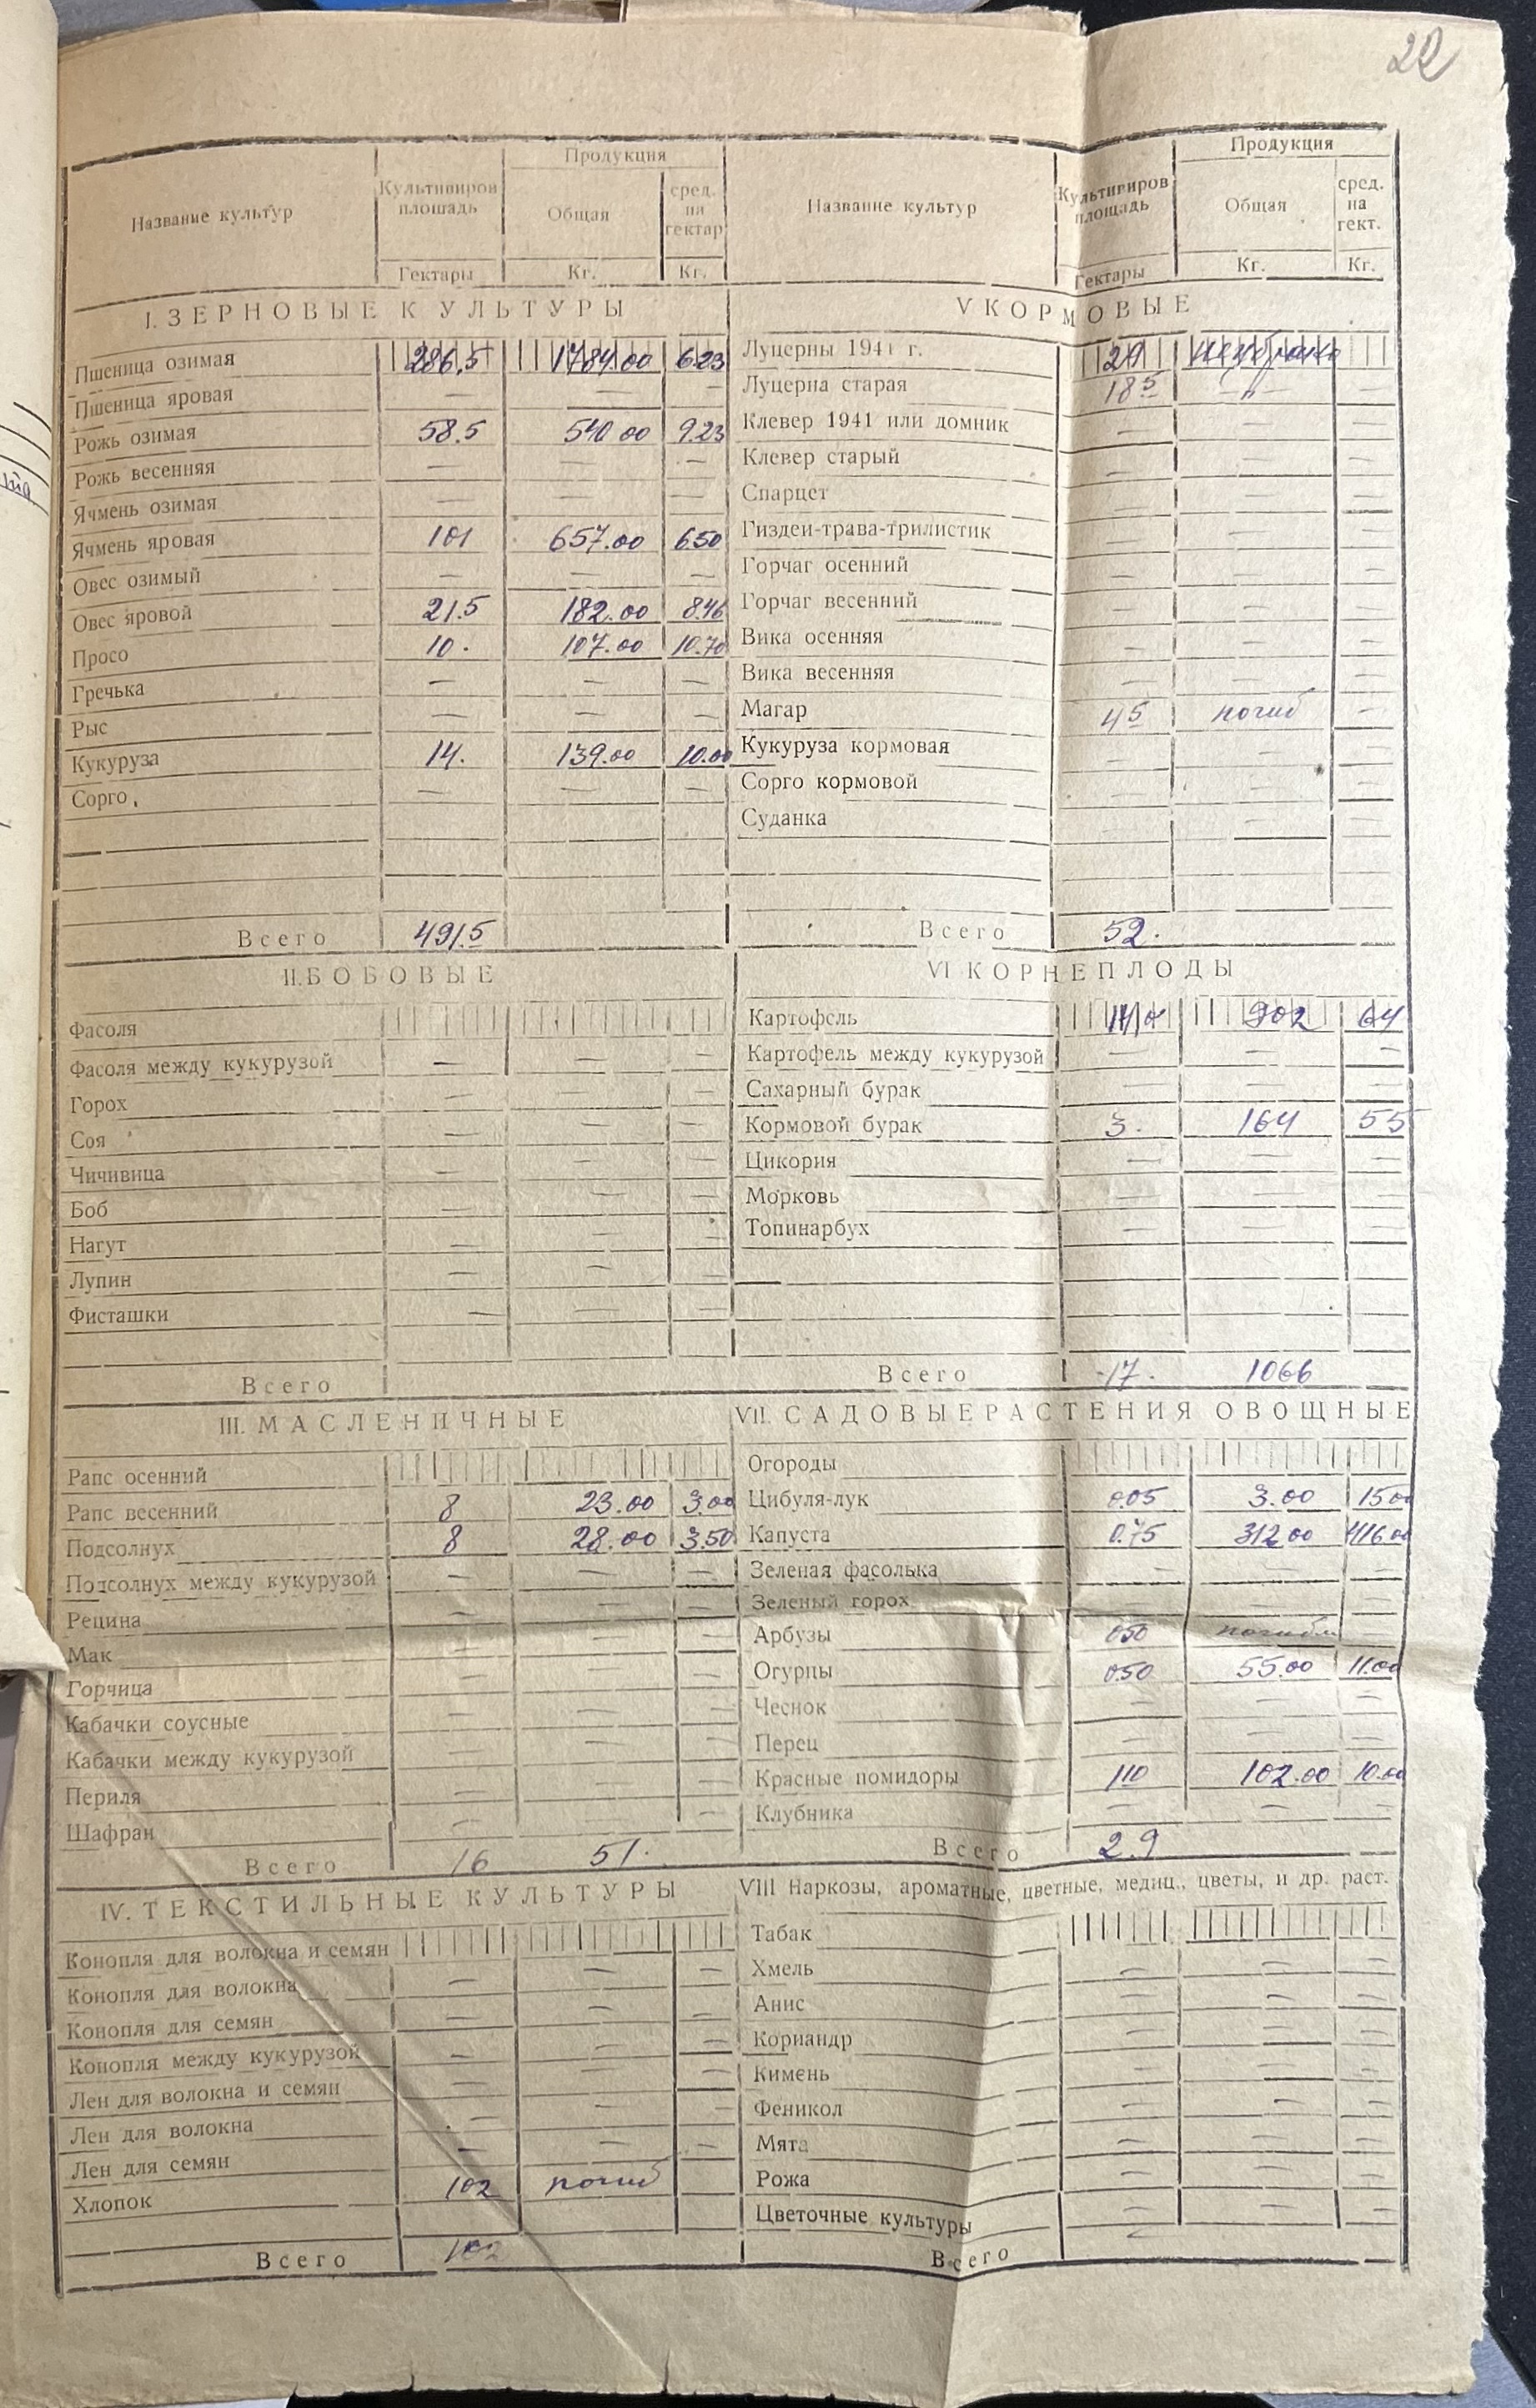 22
Название культур
Культивиров площадь
Гектары
Продукция
Общая
Кг.
сред. на гектар
Кг.
Название культур
Культивиров площадь
Гектары
Продукция
Общая
Кг.
сред. на гект.
Кг.
I. ЗЕРНОВЫЕ КУЛЬТУРЫ
Пшеница озимая 286,5 1784.00 6.23
Пшеница яровая — — —
Рожь озимая 58.5 540 00 9.23
Рожь весенняя — — —
Ячмень озимая — — —
Ячмень яровая 101 657.00 6.50
Овес озимый — — —
Овес яровой 21.5 182.00 8.46
Просо 10. 107.00 10.70
Гречька — — —
Рыс — — —
Кукуруза 14. 139.00 10.00
Сорго — — —
Всего 491.5
II. БОБОВЫЕ
Фасоля
Фасоля между кукурузой — — —
Горох — — —
Соя — — —
Чичивица — — —
Боб — — —
Нагут — — —
Лупин — — —
Фисташки — — —
Всего
III. МАСЛЕНИЧНЫЕ
Рапс осенний
Рапс весенний 8 23.00 3.00
Подсолнух 8 28.00 3.50
Подсолнух между кукурузой — — —
Рецина — — —
Мак — — —
Горчица — — —
Кабачки соусные — — —
Кабачки между кукурузой — — —
Периля — — —
Шафран — — —
Всего 16 51.
IV. ТЕКСТИЛЬНЫЕ КУЛЬТУРЫ
Конопля для волокна и семян
Конопля для волокна — — —
Конопля для семян — — —
Конопля между кукурузой — — —
Лен для волокна и семян — — —
Лен для волокна — — —
Лен для семян — — —
Хлопок 102 погиб
Всего 102
V КОРМОВЫЕ
Луцерны 1941 г. 29
Луцерна старая 18 5 —"—
Клевер 1941 или домник — — —
Клевер старый — — —
Спарцет — — —
Гиздеи-трава-трилистик — — —
Горчаг осенний — — —
Горчаг весенний — — —
Вика осенняя — — —
Вика весенняя — — —
Магар 4 5 погиб —
Кукуруза кормовая — — —
Сорго кормовой — — —
Суданка — — —
Всего 52.
VI КОРНЕПЛОДЫ
Картофель 902 64
Картофель между кукурузой — — —
Сахарный бурак — — —
Кормовой бурак 3. 164 55
Цикория — — —
Морковь — — —
Топинарбух — — —
Всего 17. 1066
VII. САДОВЫЕ РАСТЕНИЯ ОВОЩНЫЕ
Огороды
Цибуля-лук 0.05 3.00 15 00
Капуста 0.75 312 00 416 00
Зеленая фасолька — — —
Зеленый горох — — —
Арбузы 050 погибли —
Огурцы 0.50 55.00 11.00
Чеснок — — —
Перец — — —
Красные помидоры 110 102.00 10.00
Клубника — — —
Всего 2.9
VIII Наркозы, ароматные, цветные, медиц., цветы, и др. раст.
Табак
Хмель — — —
Анис — — —
Кориандр — — —
Кимень — — —
Феникол — — —
Мята — — —
Рожа — — —
Цветочные культуры — — —
Всего